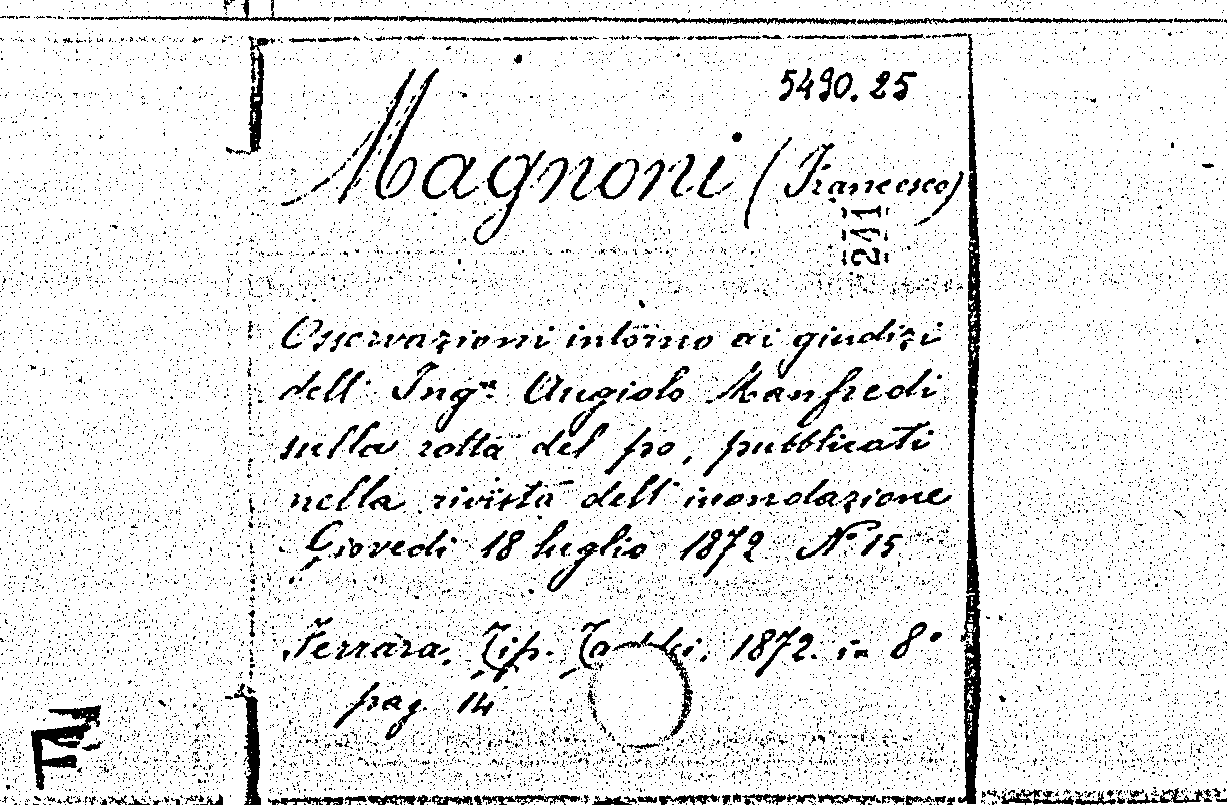 5490.25
Magnoni (Francesco)
211
Osservazioni intorno ai giudizi
dell' Ingre Angiolo Manfredi
sulla rotta del po, pubblicati
nella rivista dell' inondazione
Giovedi 18 luglio 1872 N° 15
Ferrara. Tip. Taddei. 1872. in 8°
pag. 14